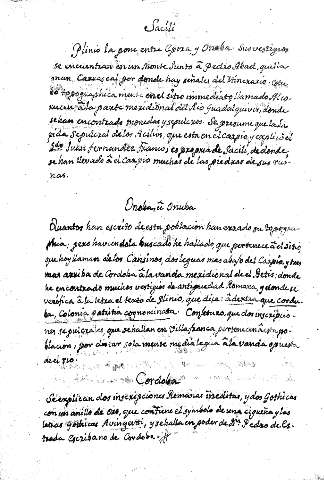 Sacili
Plinio la pone entre Epora y Onoba. Sus vestigios
se encuentran en un Monte Junto â Pedro Abad,
por donde hay señales del Itinerario.
topographica mente en el sitio inmediato llamado Alco-
rucen â la parte meridional del Rio Guadalquivir, donde
se han encontrado monedas y sepulcros. Se presume que la La-
pida Sepulcral de los Acilios, que esta en el Carpio y explicò el
Juan Fernandez Franco, es propria de Sacili, de donde
se han llevado â el Carpio muchas de las piedras de sus rui-
nas.
Onoba, û Onuba
Quantos han escrito de esta poblacion han errado su topogra-
phia; pero haviendola buscado he hallado, que pertenece â el sitio
que hoy llaman de los Cansinos, dos leguas mas abajo del Carpio, y tres
mas arriba de Cordoba â la vanda meridional de el Betis; donde
he encontrado muchos vestigios de antiguedad Romana, y donde se
verifica â la letra el texto de Plinio, que dice: â dextra que cordu-
ba, Colonia patritia cognominata. Conjeturo, que dos inscripcio-
nes sepulcrales, que se hallan en Villafranca pertenecen â esta po-
blacion, por distar solamente media legua â la vanda opuesta
de el rio.
Cordoba
Se explican dos inscripciones Romanas ineditas, y dos Gothicas
con un anillo de oro, que contiene el symbolo de una cigueña y las
letras Gothicas Avinguti, y se halla en poder de Dn. Pedro de Es-
trada Escribano de Cordoba.